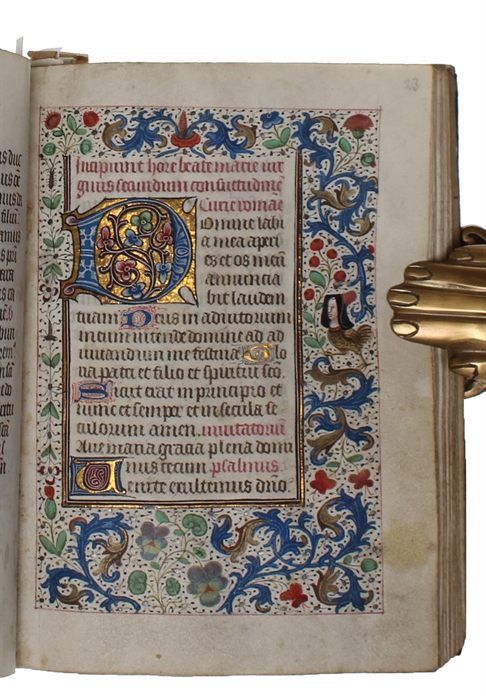 23
Incipiunt hore beate marie vir
ginis secundum consuetudinē
Curie romae
Domine labi
a mea aperi
es et os meū
annuncia
bit laudem
tuam Deus in adiutorium
meum intende domine ad ad
iuuandum me festina Glo
ria patri et filio et spiritui sco
Sicut erat in principio et
nunc et semper et in secula se
culorum amen. inuitatoriū
Aue maria gracia plena domi
nus tecum. psalmus.
Uenite exultemus dn̄o.